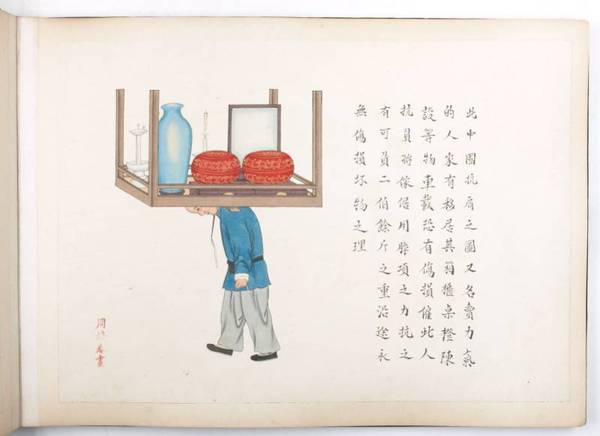 此中國抗肩之圖又名賣力氣
的人家有移居其箱櫃桌橙陳
設等物車載恐有傷損催此人
抗員將傢俱用脖項之力抗之
有可員二伯餘斤之重沿途永
無傷損坏物之理
周培春畫